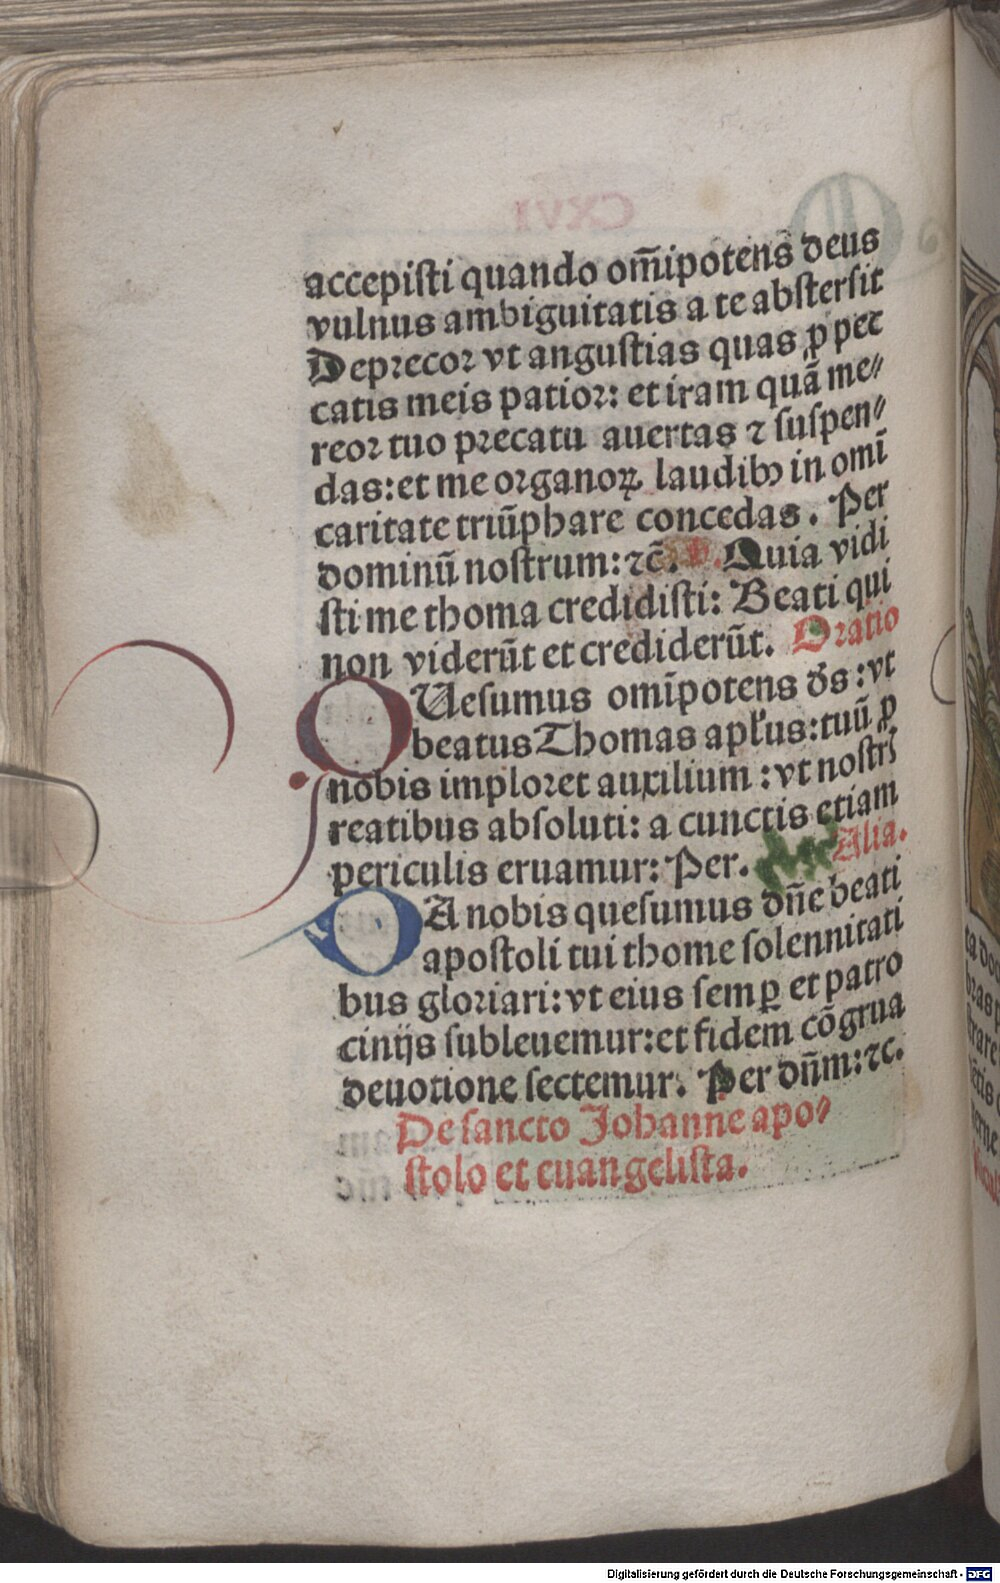 accepisti quando om̄ipotens deus
vulnus ambiguitatis a te abstersit
Deprecor vt angustias quas ꝓ pec
catis meis patior: et iram quā me⸗
reor tuo precatu auertas ⁊ suspen⸗
das: et me organoꝝ laudibꝫ in omī
caritate triūphare concedas. Per
dominū nostrum: ⁊c̄. Quia vidi
sti me thoma credidisti: Beati qui
non viderūt et crediderūt. Oratio
QUesumus omīpotens d̄s: vt
beatus Thomas apl̓us: tuū ꝓ
nobis imploret auxilium: vt nostris
reatibus absoluti: a cunctis etiam
periculis eruamur: Per. Alia.
DA nobis quesumus dn̄e beati
apostoli tui thome solennitati
bus gloriari: vt eius semꝑ et patro
cinijs subleuemur: et fidem cōgrua
deuotione sectemur. Per dn̄m: ⁊c.
De sancto Johanne apo⸗
stolo et euangelista.
Digitalisierung gefördert durch die Deutsche Forschungsgemeinschaft - DFG